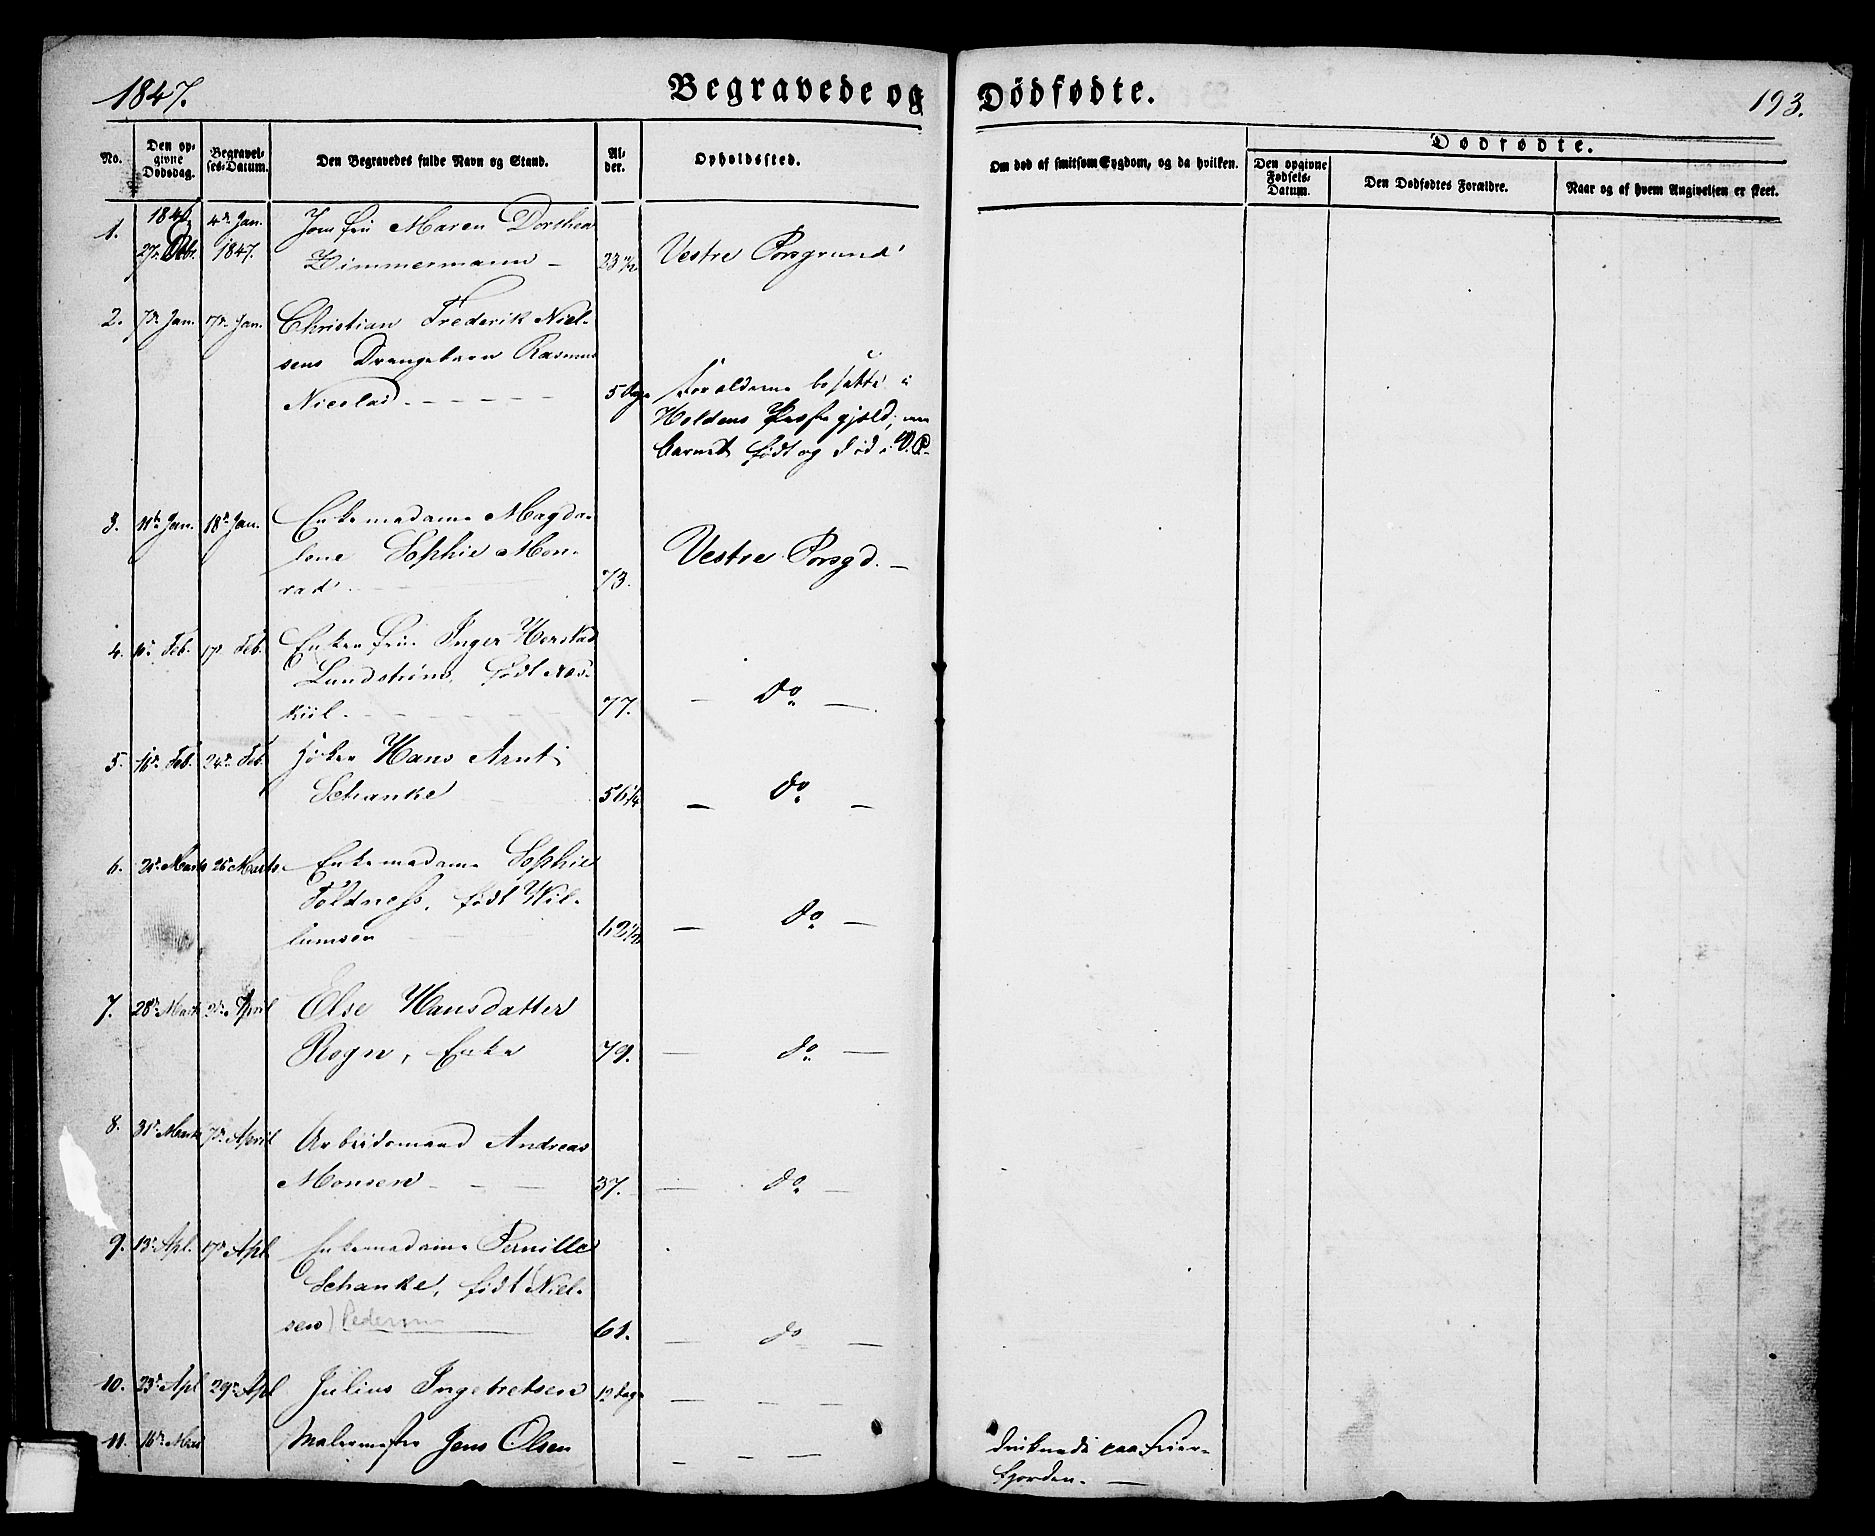 1847.
Begravede og Dödfödte.
193.
No.
Den opgivne Dödsdag.
Begravelses-Datum.
Den Begravedes fulde Navn og Stand.
Alder.
Opholdssted.
Om död af smitsom Sygdom, og da hvilken.
Dödfödte.
Den opgivne Födsels-Datum.
Den Dödfödtes Forældre.
Naar og af hvem Angivelsen er skeet.
1. 1846 4de Jan. Jomfru Maren Dorthea
27de 1847. Zimmermann — 23 Vestre Porsgrund
2. 7de Jan. 17de Jan. Christian Frederik Niel-
sens Drengebarn Rasmus
Nicolai 5 Dage Forældrene bosatte i
Holdens Præstegjæld, men
barnet født og død i V. P.
3. 11te Jan. 18de Jan. Enkemadame Magda-
lene Sophie Mon-
rad. 73. Vestre Porsgd. —
4. 10de Feb. 17de Feb. Enkefru Inger Herstad
Lundstrøm, født Aas-
kiil. 77. — Do —
5. 16de Feb. 24de Feb. Høker Hans Arnt
Schanke 56 1/4 — Do —
6. Marts Marts Enkemadame Sophie
Foldness, født Wil-
lumsen 62 1/2 — Do —
7. 28de Marts April Else Hansdatter
Rogn, Enke 79. — do —
8. 31te Marts 7de April Arbeidsmand Andreas
Monsen 37. — do —
9. 13de Apl. 17de Apl. Enkemadame Pernille
Schanke, født (Niel-
sen) Pedersen 61. — do —
10. 23de Apl 29de Apl Julius Ingebretsen 12 Dage — — —
11. 16de Malermester Jens Olsen — — — druknede paa Frier-
fjorden. —